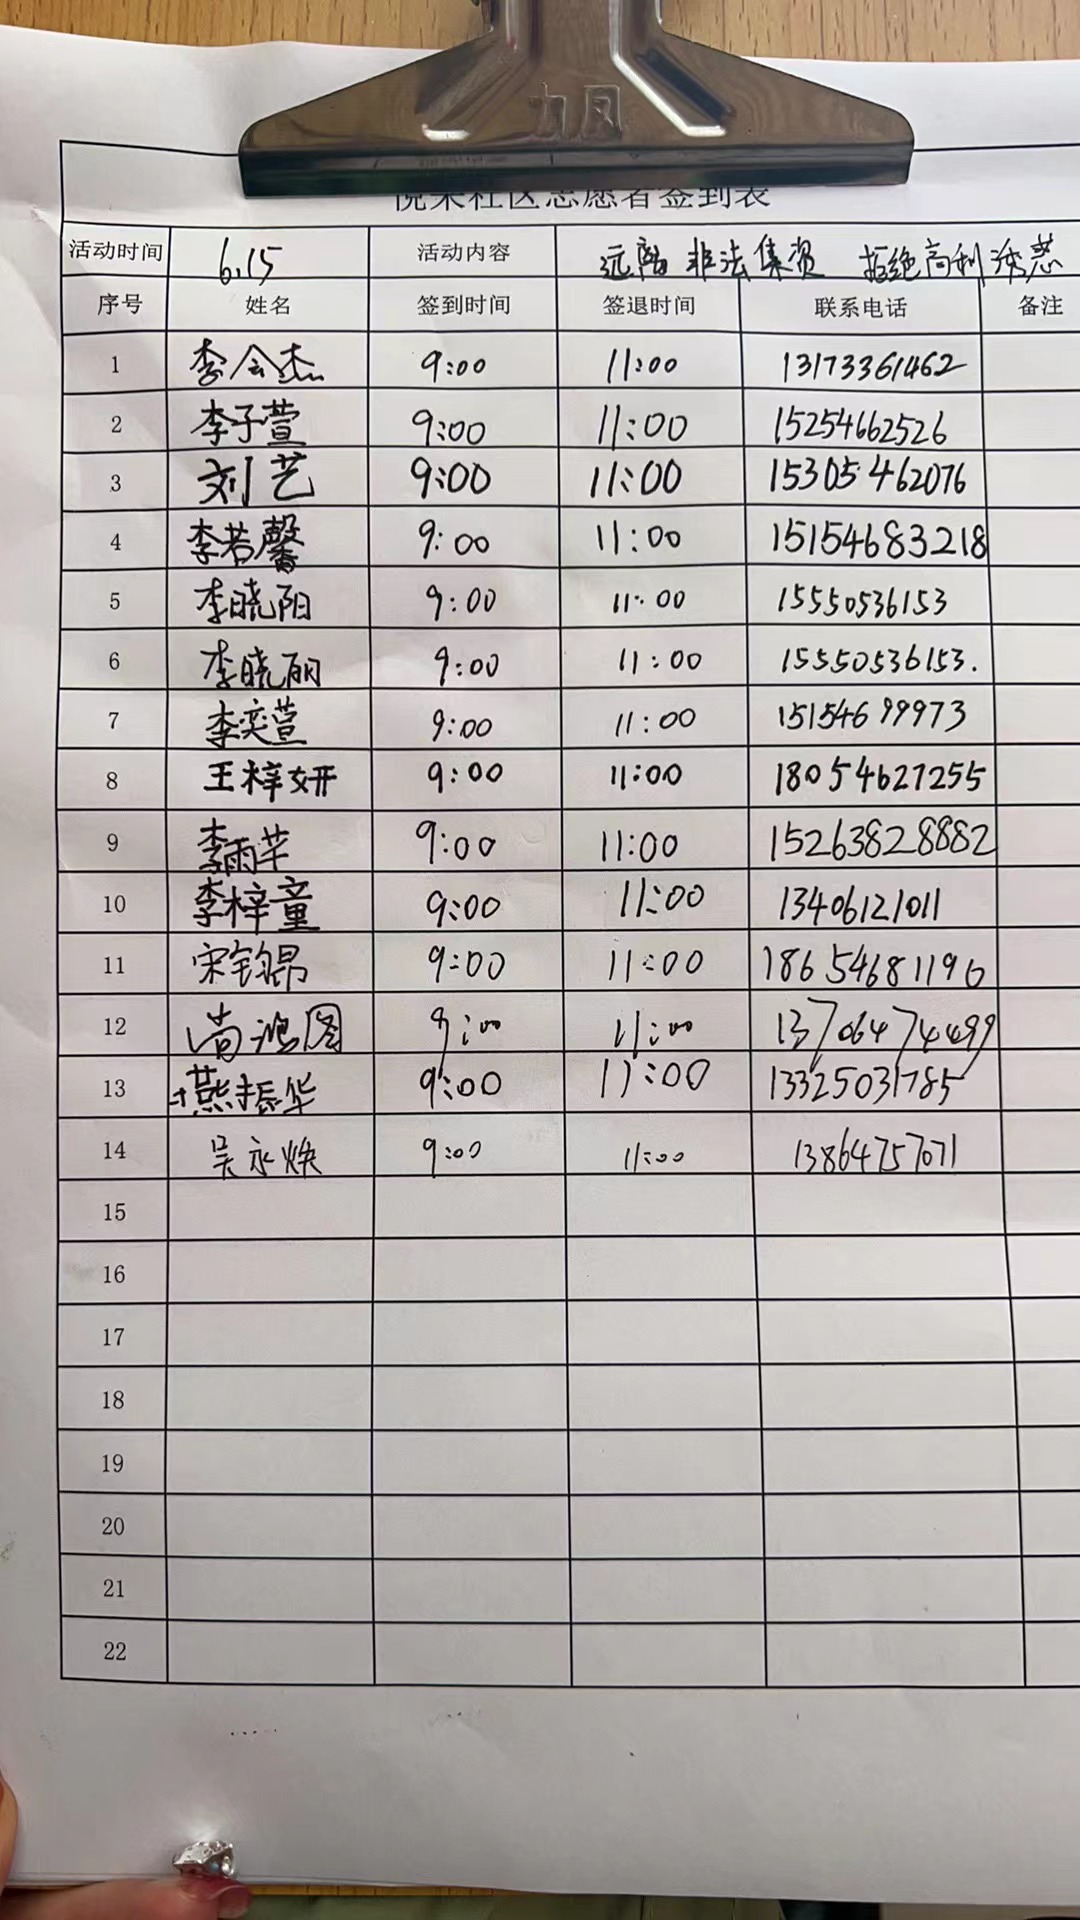 力风
悦来社区志愿者签到表
活动时间 6.15 活动内容 远离非法集资 拒绝高利诱惑
序号 姓名 签到时间 签退时间 联系电话 备注
1 李会杰 9:00 11:00 13173361462
2 李子萱 9:00 11:00 15254662526
3 刘艺 9:00 11:00 15305462076
4 李若馨 9:00 11:00 15154683218
5 李晓阳 9:00 11:00 15550536153
6 李晓丽 9:00 11:00 15550536153.
7 李奕萱 9:00 11:00 15154699973
8 王梓妍 9:00 11:00 18054627255
9 李雨芊 9:00 11:00 15263828882
10 李梓童 9:00 11:00 13406121011
11 宋钧昂 9:00 11:00 18654681196
12 尚鸿图 9:00 11:00 13706474499
13 燕振华 9:00 11:00 13325031785
14 吴永焕 9:00 11:00 13864757071
15
16
17
18
19
20
21
22